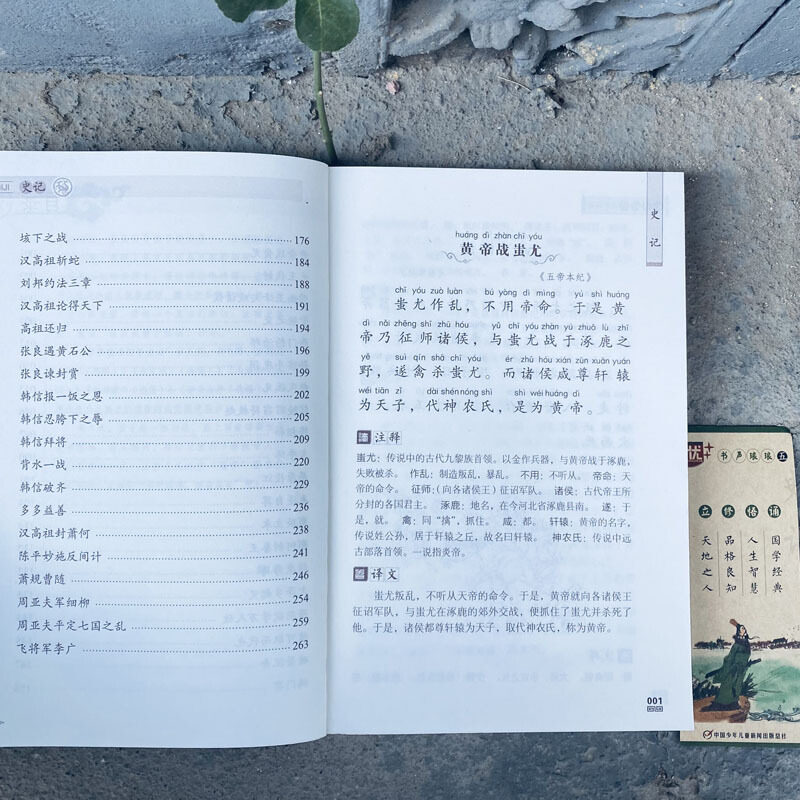 史记
垓下之战 176
汉高祖斩蛇 184
刘邦约法三章 188
汉高祖论得天下 191
高祖还归 194
张良遇黄石公 196
张良谏封赏 199
韩信报一饭之恩 202
韩信忍胯下之辱 205
韩信拜将 209
背水一战 220
韩信破齐 229
多多益善 236
汉高祖封萧何 238
陈平妙施反间计 241
萧规曹随 246
周亚夫军细柳 254
周亚夫平定七国之乱 259
飞将军李广 263
史记
huáng dì zhàn chī yóu
黄帝战蚩尤
《五帝本纪》
chī yóu zuò luàn bú yòng dì mìng yú shì huáng
蚩尤作乱，不用帝命。于是黄
dì nǎi zhēng shī zhū hóu yǔ chī yóu zhàn yú zhuō lù zhī
帝乃征师诸侯，与蚩尤战于涿鹿之
yě suì qín shā chī yóu ér zhū hóu xián zūn xuān yuán
野，遂禽杀蚩尤。而诸侯咸尊轩辕
wéi tiān zǐ dài shén nóng shì shì wéi huáng dì
为天子，代神农氏，是为黄帝。
注释
蚩尤：传说中的古代九黎族首领。以金作兵器，与黄帝战于涿鹿，
失败被杀。 作乱：制造叛乱，暴乱。 不用：不听从。 帝命：天
帝的命令。 征师：（向各诸侯王）征诏军队。 诸侯：古代帝王所
分封的各国君主。 涿鹿：地名，在今河北省涿鹿县南。 遂：于
是，就。 禽：同“擒”，抓住。 咸：都。 轩辕：黄帝的名字，
传说姓公孙，居于轩辕之丘，故名曰轩辕。 神农氏：传说中远
古部落首领。一说指炎帝。
译文
蚩尤叛乱，不听从天帝的命令。于是，黄帝就向各诸侯王
征诏军队，与蚩尤在涿鹿的郊外交战，便抓住了蚩尤并杀死了
他。于是，诸侯都尊轩辕为天子，取代神农氏，称为黄帝。
001
优+ 书声琅琅 五
立修悟诵
国学经典
人生智慧
品格良知
天地之人
中国少年儿童新闻出版总社